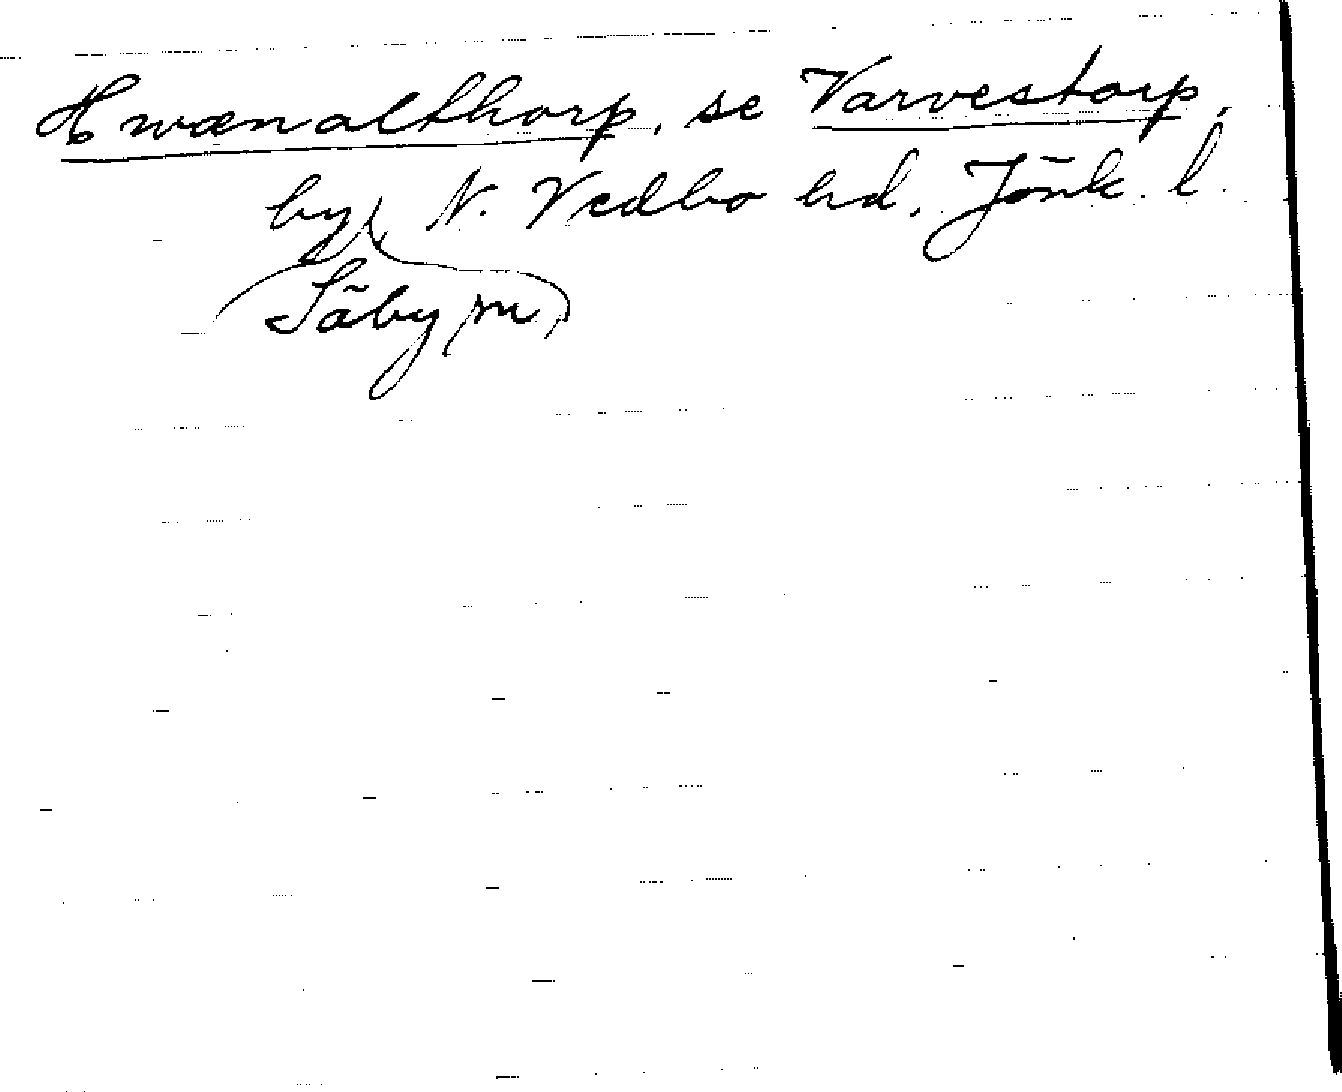 Hwænalthorp, se Varvestorp,
by, N. Vedbo hd, Jönk. l.
Säby sn,